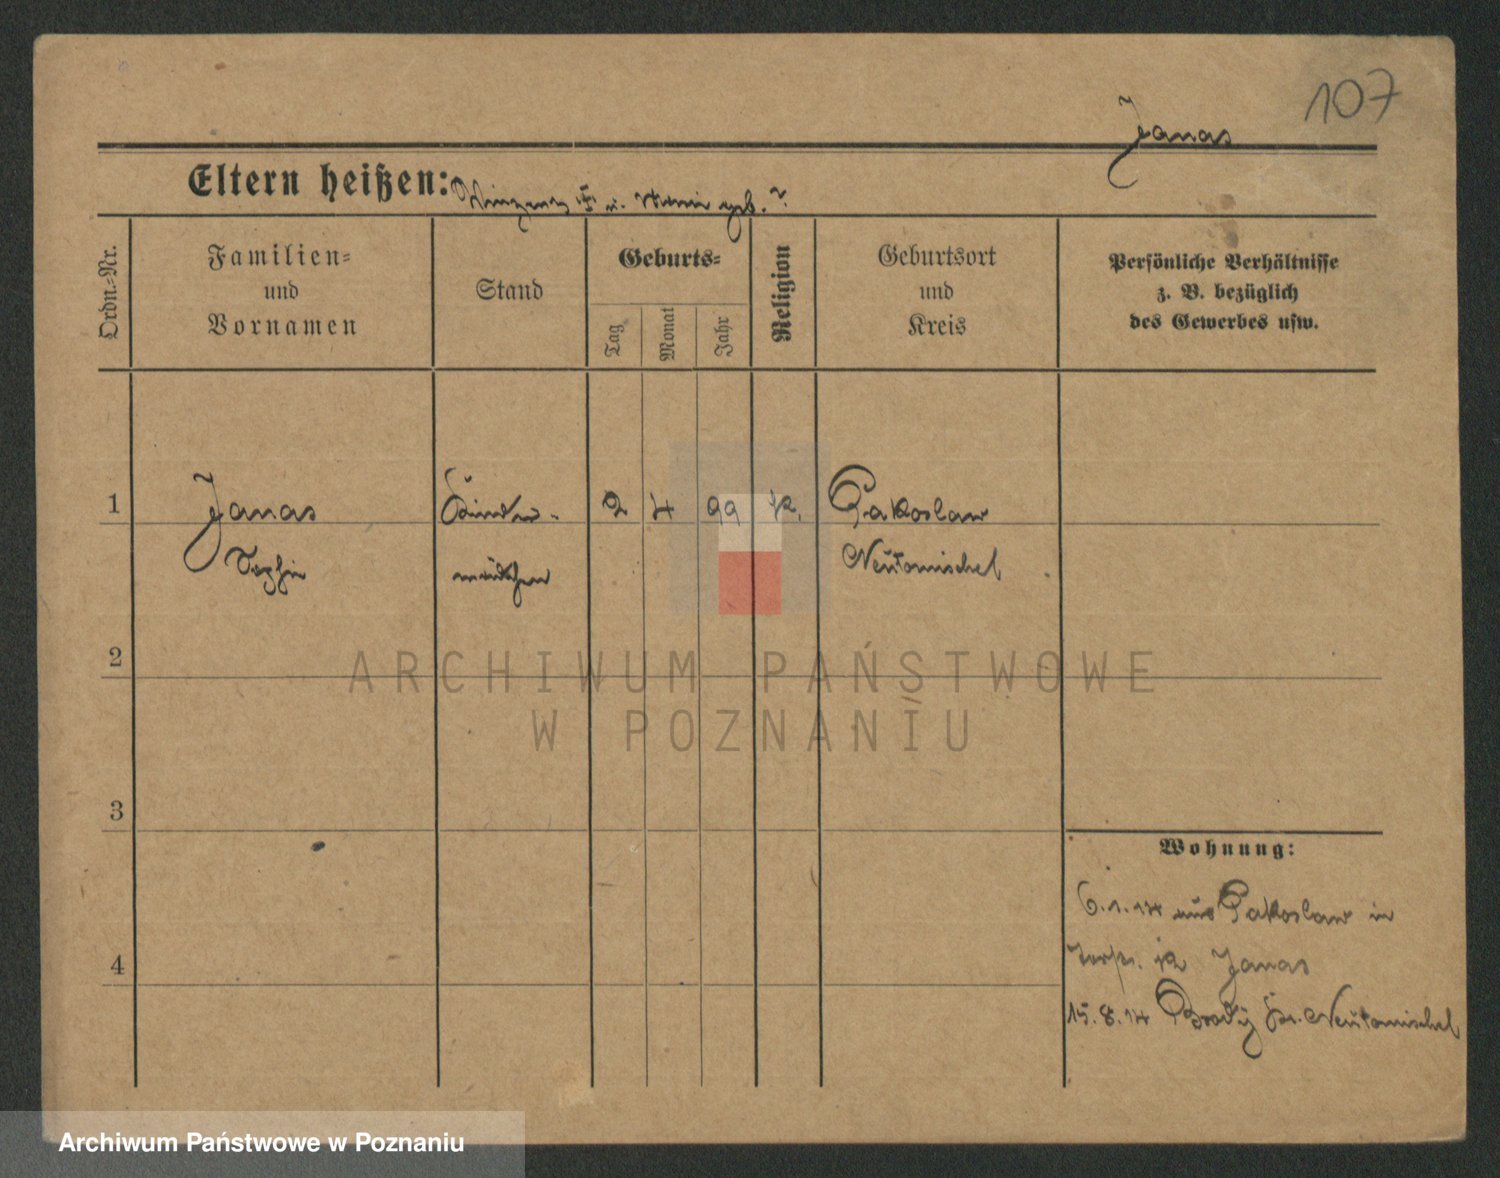 107
Janas
Eltern heißen: Vinzenz u. geb. ?
Ordn.-Nr.
Familien-
und
Vornamen
Stand
Geburts-
Tag
Monat
Jahr
Religion
Geburtsort
und
Kreis
Persönliche Verhältnisse
z. B. bezüglich
des Gewerbes usw.
1 Janas Kinder- 2 4 99 k. Pakoslaw
Sophie mädchen Neutomischel
2
3
Wohnung:
6.1.14 aus Pakoslaw in
12 Janas
4
15.8.14 Brody Kr. Neutomischel
ARCHIWUM PAŃSTWOWE
W POZNANIU
Archiwum Państwowe w Poznaniu